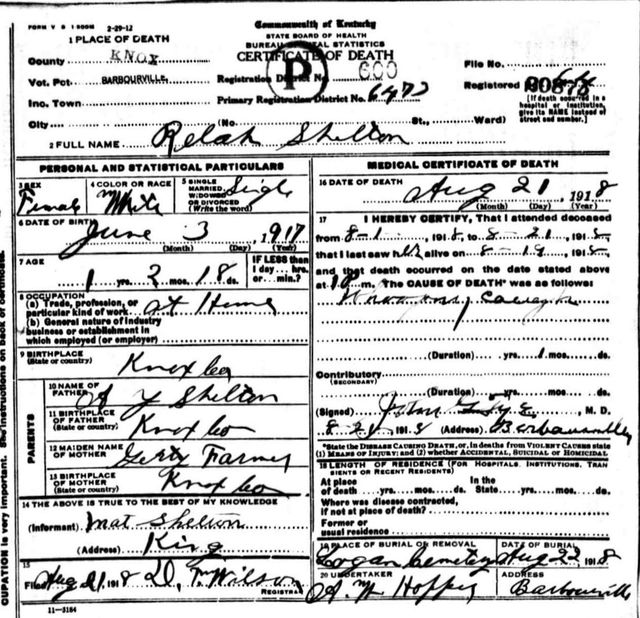 FORM V S 1 500M 2-29-12
Commonwealth of Kentucky
STATE BOARD OF HEALTH
BUREAU OF VITAL STATISTICS
CERTIFICATE OF DEATH
1 PLACE OF DEATH
County KNOX
Vot. Pct BARBOURVILLE.
Inc. Town
City
Registration District No. 600
P
Primary Registration District No. 6472
(No St., Ward)
File No.
Registered No.
[If death occurred in a hospital or institution, give its NAME instead of street and number.]
2 FULL NAME Relah Shelton
PERSONAL AND STATISTICAL PARTICULARS
3 SEX Female
4 COLOR OR RACE White
5 SINGLE MARRIED, WIDOWED OR DIVORCED (Write the word) Single
6 DATE OF BIRTH June 3 1917
(Month) (Day) (Year)
7 AGE 1 yrs. 2 mos. 18 ds.
IF LESS than 1 day... hrs. or min.?
8 OCCUPATION
(a) Trade, profession, or particular kind of work at Home
(b) General nature of industry business or establishment in which employed (or employer)
9 BIRTHPLACE (State or country) Knox co
PARENTS
10 NAME OF FATHER A Y Shelton
11 BIRTHPLACE OF FATHER (State or country) Knox co
12 MAIDEN NAME OF MOTHER Gerty Farmer
13 BIRTHPLACE OF MOTHER (State or country) Knox co
14 THE ABOVE IS TRUE TO THE BEST OF MY KNOWLEDGE
(Informant) Mat Shelton
(Address) King
15
Filed Aug 21 1918 Wilson
REGISTRAR
11—3184
MEDICAL CERTIFICATE OF DEATH
16 DATE OF DEATH Aug 21 1918
(Month) (Day) (Year)
17 I HEREBY CERTIFY, That I attended deceased
from 8-1 1918, to 8-21 1918
that I last saw her alive on 8-19 1918
and that death occurred on the date stated above
at m. The CAUSE OF DEATH* was as follows:
(Duration) yrs. 1 mos. ds.
Contributory (SECONDARY)
(Duration) yrs. mos. ds.
(Signed) John M. D.
1918 (Address) Barbourville
*State the DISEASE CAUSING DEATH, or, in deaths from VIOLENT CAUSES state (1) MEANS OF INJURY; and (2) whether ACCIDENTAL, SUICIDAL OR HOMICIDAL
18 LENGTH OF RESIDENCE (FOR HOSPITALS, INSTITUTIONS, TRANSIENTS OR RECENT RESIDENTS)
At place of death yrs. mos. ds. In the State yrs. mos. ds.
Where was disease contracted, if not at place of death?
Former or usual residence
19 PLACE OF BURIAL OR REMOVAL Logan Cemetery
DATE OF BURIAL Aug 22 1918
20 UNDERTAKER A M Hopper
ADDRESS Barbourville
CUPATION is very important. See instructions on back of certificate.